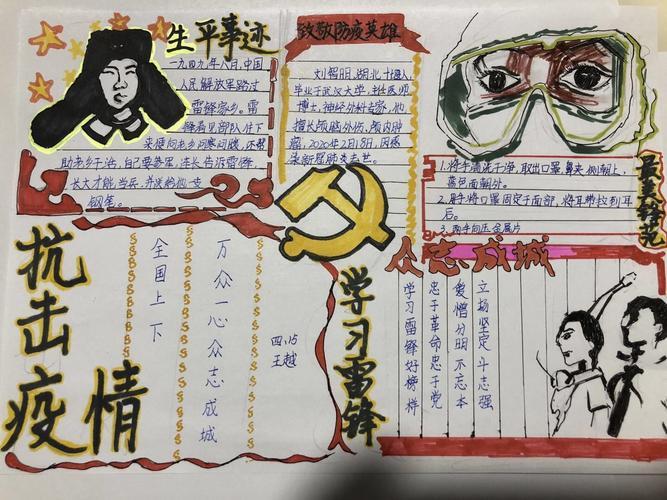 生平事迹
一九四九年八月,中国
人民解放军路过
雷锋家乡。雷
锋看见部队住下
来便向老乡问寒问暖,还帮
助老乡干活,自己要参军,连长告诉雷锋,
长大才能当兵,并送给他一支
钢笔。
致敬防疫英雄
刘智明,湖北十堰人,
毕业于武汉大学,主任医师
博士,神经外科专家,他
擅长颅脑外伤,颅内肿
瘤,2020年2月18日,因感
染新冠肺炎去世。
1.将手清洗干净,取出口罩,鼻夹侧朝上,
蓝色面朝外。
2.用手将口罩固定于面部,将耳带拉到耳
后。
3.两手向压金属片
最美锋范
抗击疫情
全国上下
万众一心众志成城
四.15
王越
学习雷锋
众志成城
学习雷锋好榜样
忠于革命忠于党
爱憎分明不忘本
立场坚定斗志强